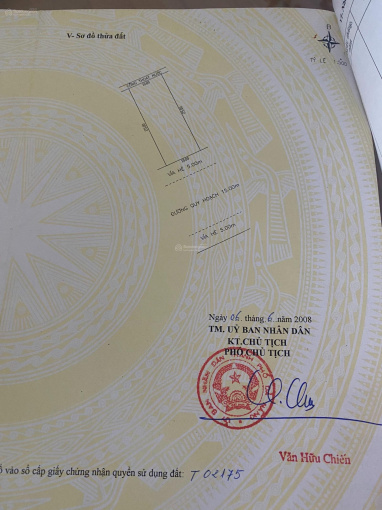 V- Sơ đồ thửa đất
VỈA HÈ 5,00m
ĐƯỜNG QUY HOẠCH 15,00m
VỈA HÈ 5,00m
Ngày 06. tháng 6 năm 2008
TM. UỶ BAN NHÂN DÂN
KT.CHỦ TỊCH
PHÓ CHỦ TỊCH
Văn Hữu Chiến
vào sổ cấp giấy chứng nhận quyền sử dụng đất: T 02175